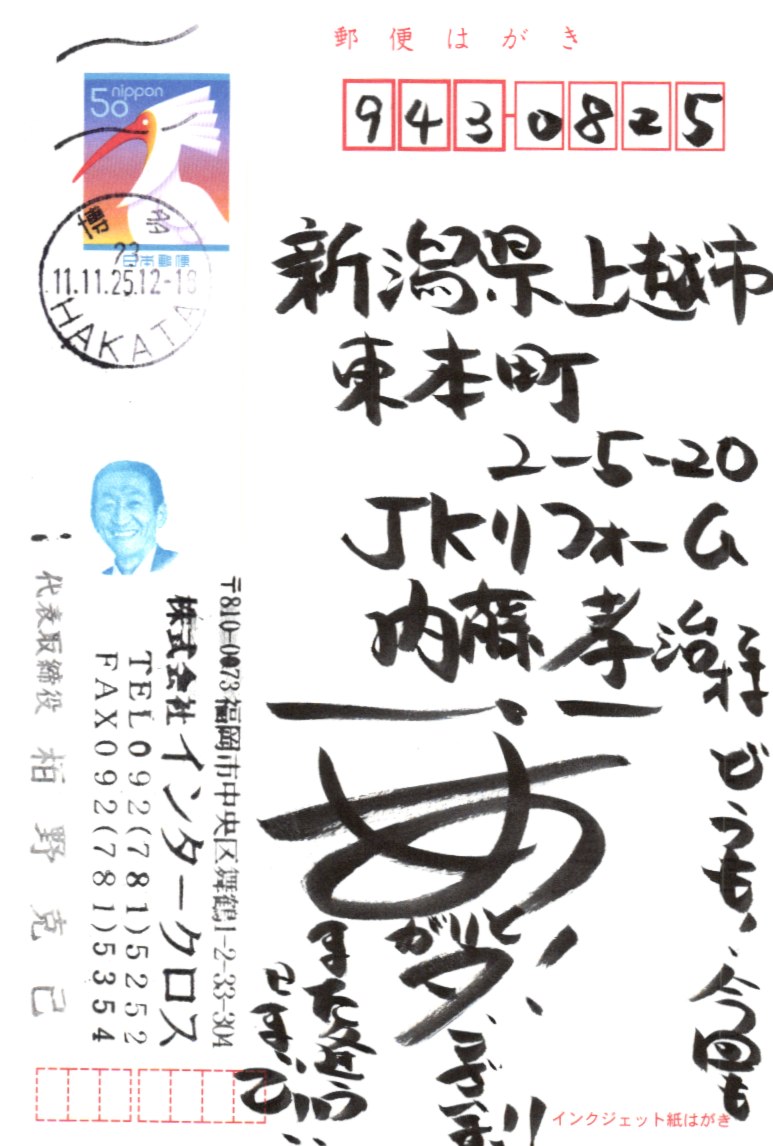 郵便はがき
50 nippon
日本郵便
博多
11.11.25.12-18
HAKATA
943-0825
新潟県上越市
東本町
2-5-20
JKリフォーム
内藤孝治様
どうも、今回も
あ
がりとう!
ございます
また
〒810-0073福岡市中央区舞鶴1-2-33-304
株式会社インタークロス
TEL092(781)5252
FAX092(781)5354
代表取締役 柏野克己
インクジェット紙はがき